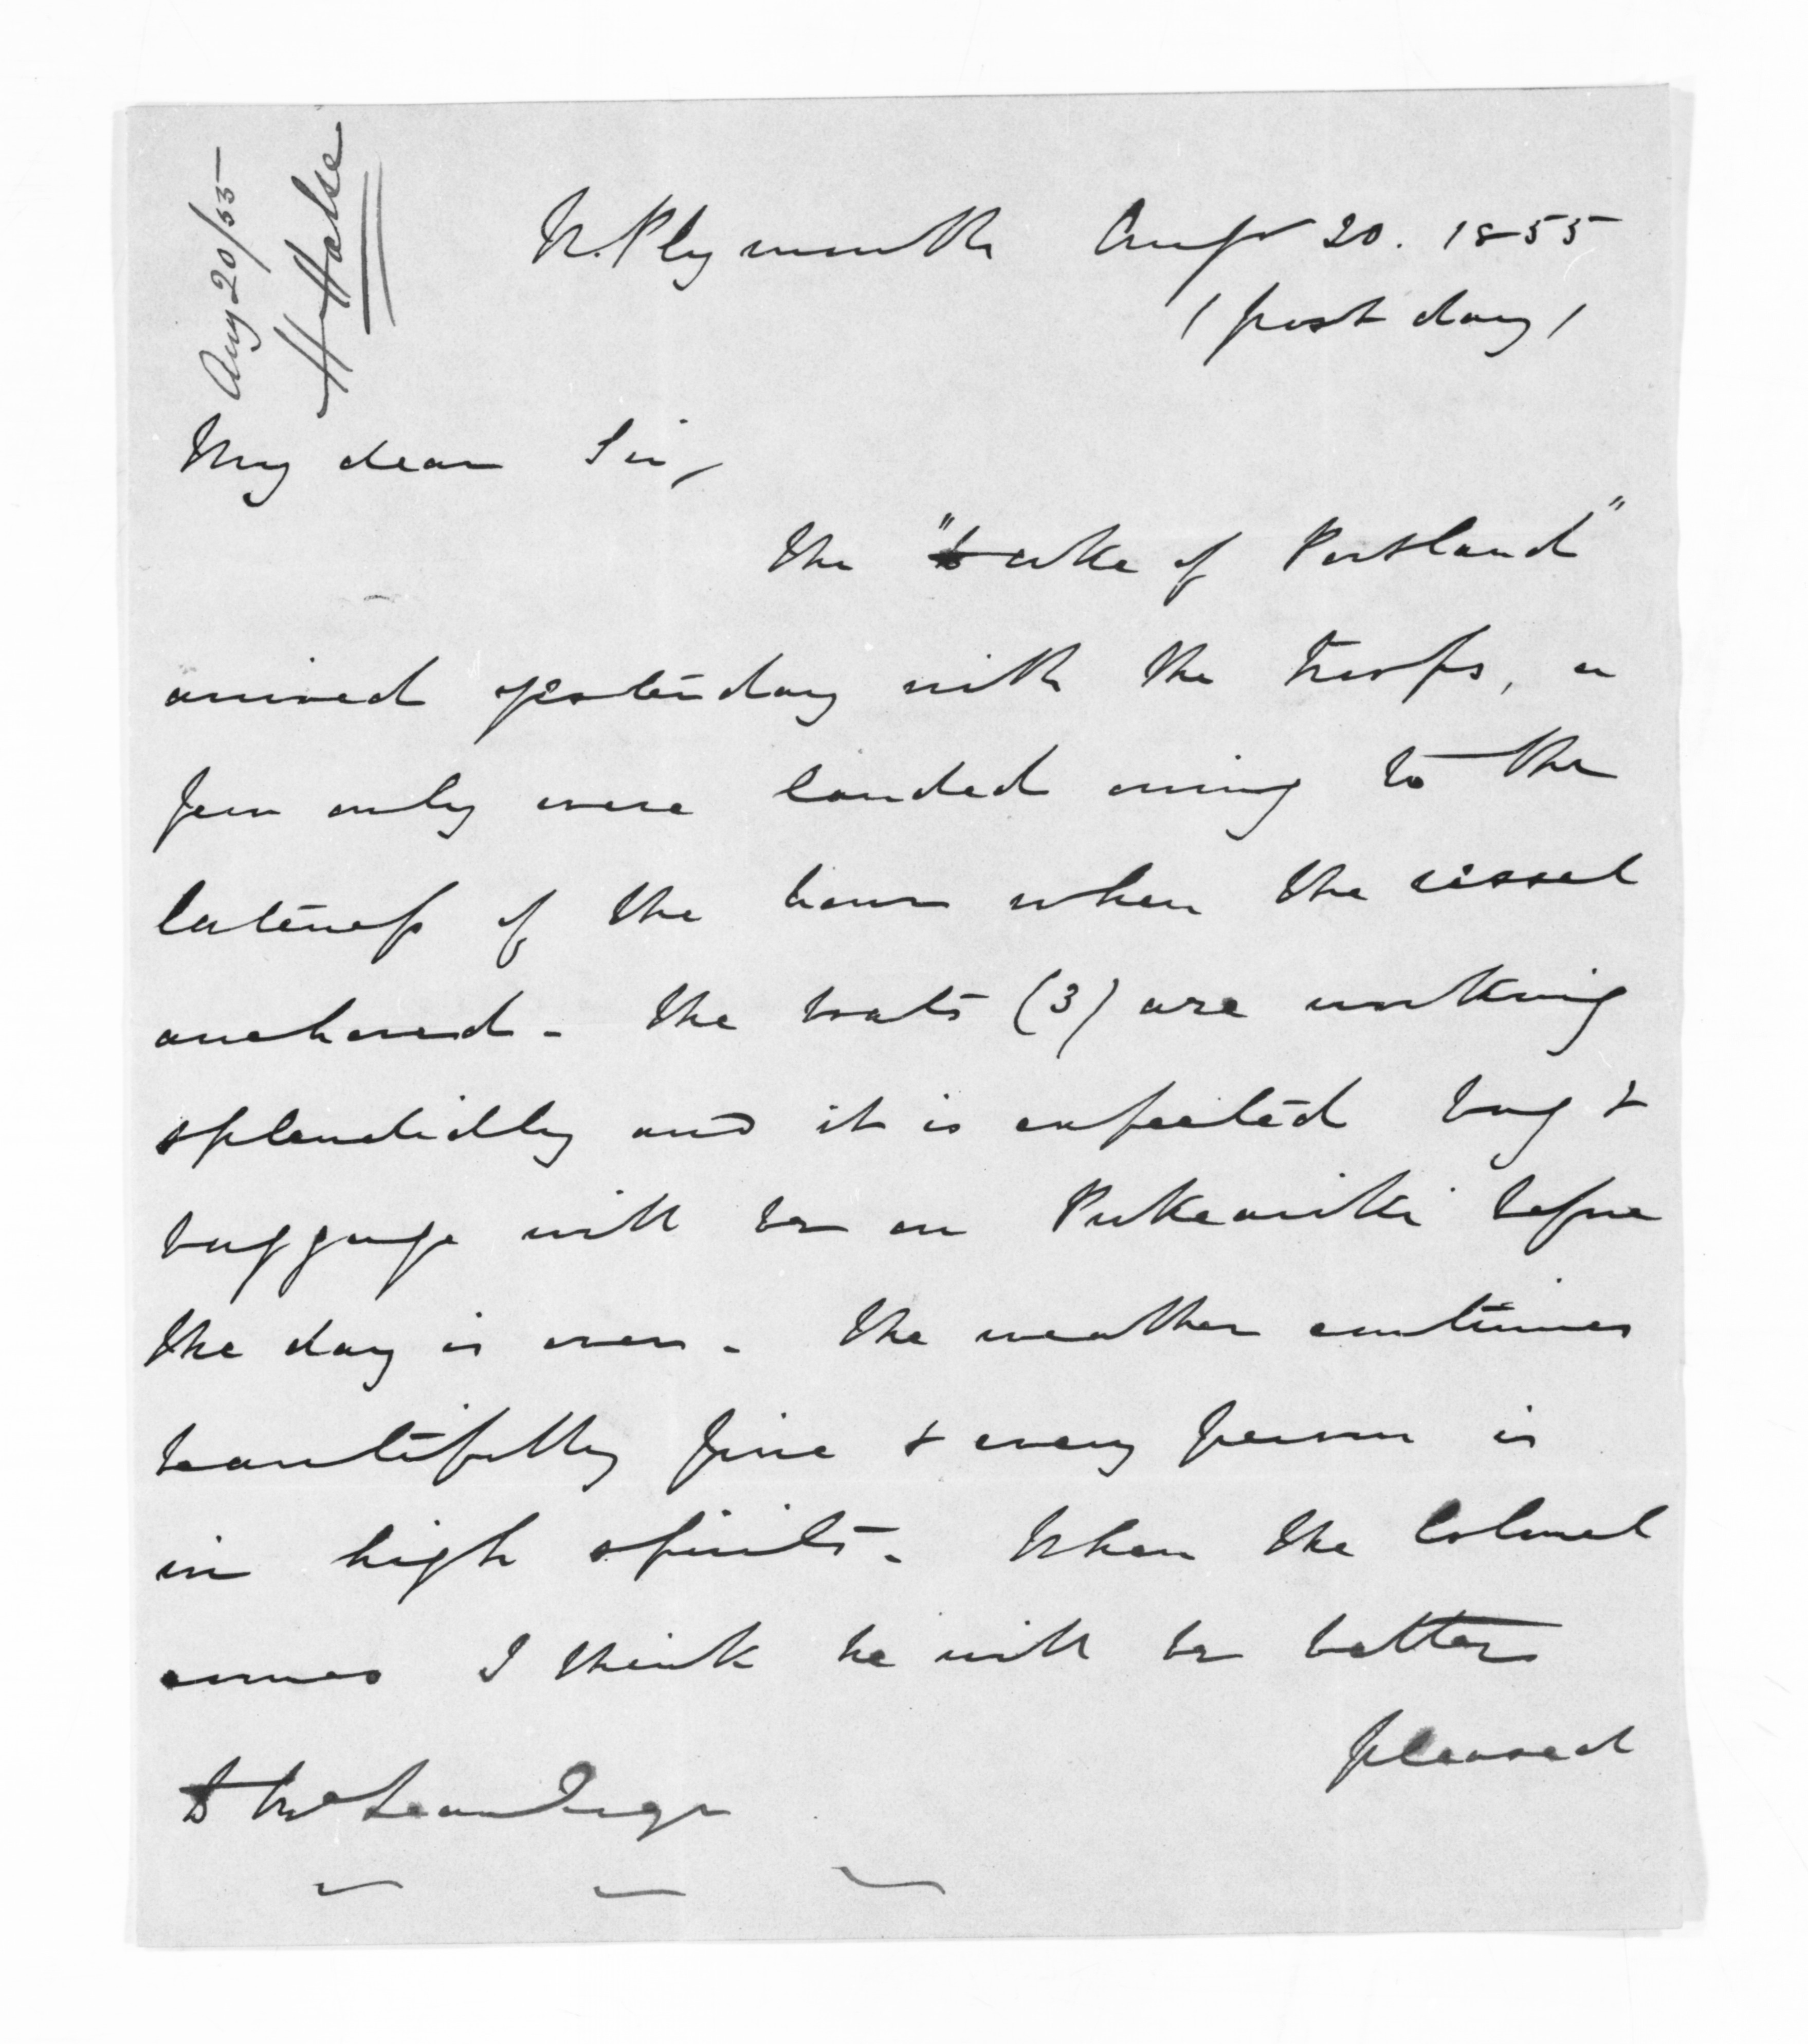 Aug 20/55
H Halse
N. Plymouth Augt 20. 1855
(post day)
My dear Sir,
The "Duke of Portland"
arrived yesterday with the troops, a
few only were landed owing to the
lateness of the hour when the vessel
anchored. The boats (3) are working
splendidly and it is expected bag &
baggage will be on Pukeariki before
the day is over. The weather continues
beautifully fine & every person is
in high spirits. When the Colonel
comes I think he will be better
pleased
D McLean Esqr